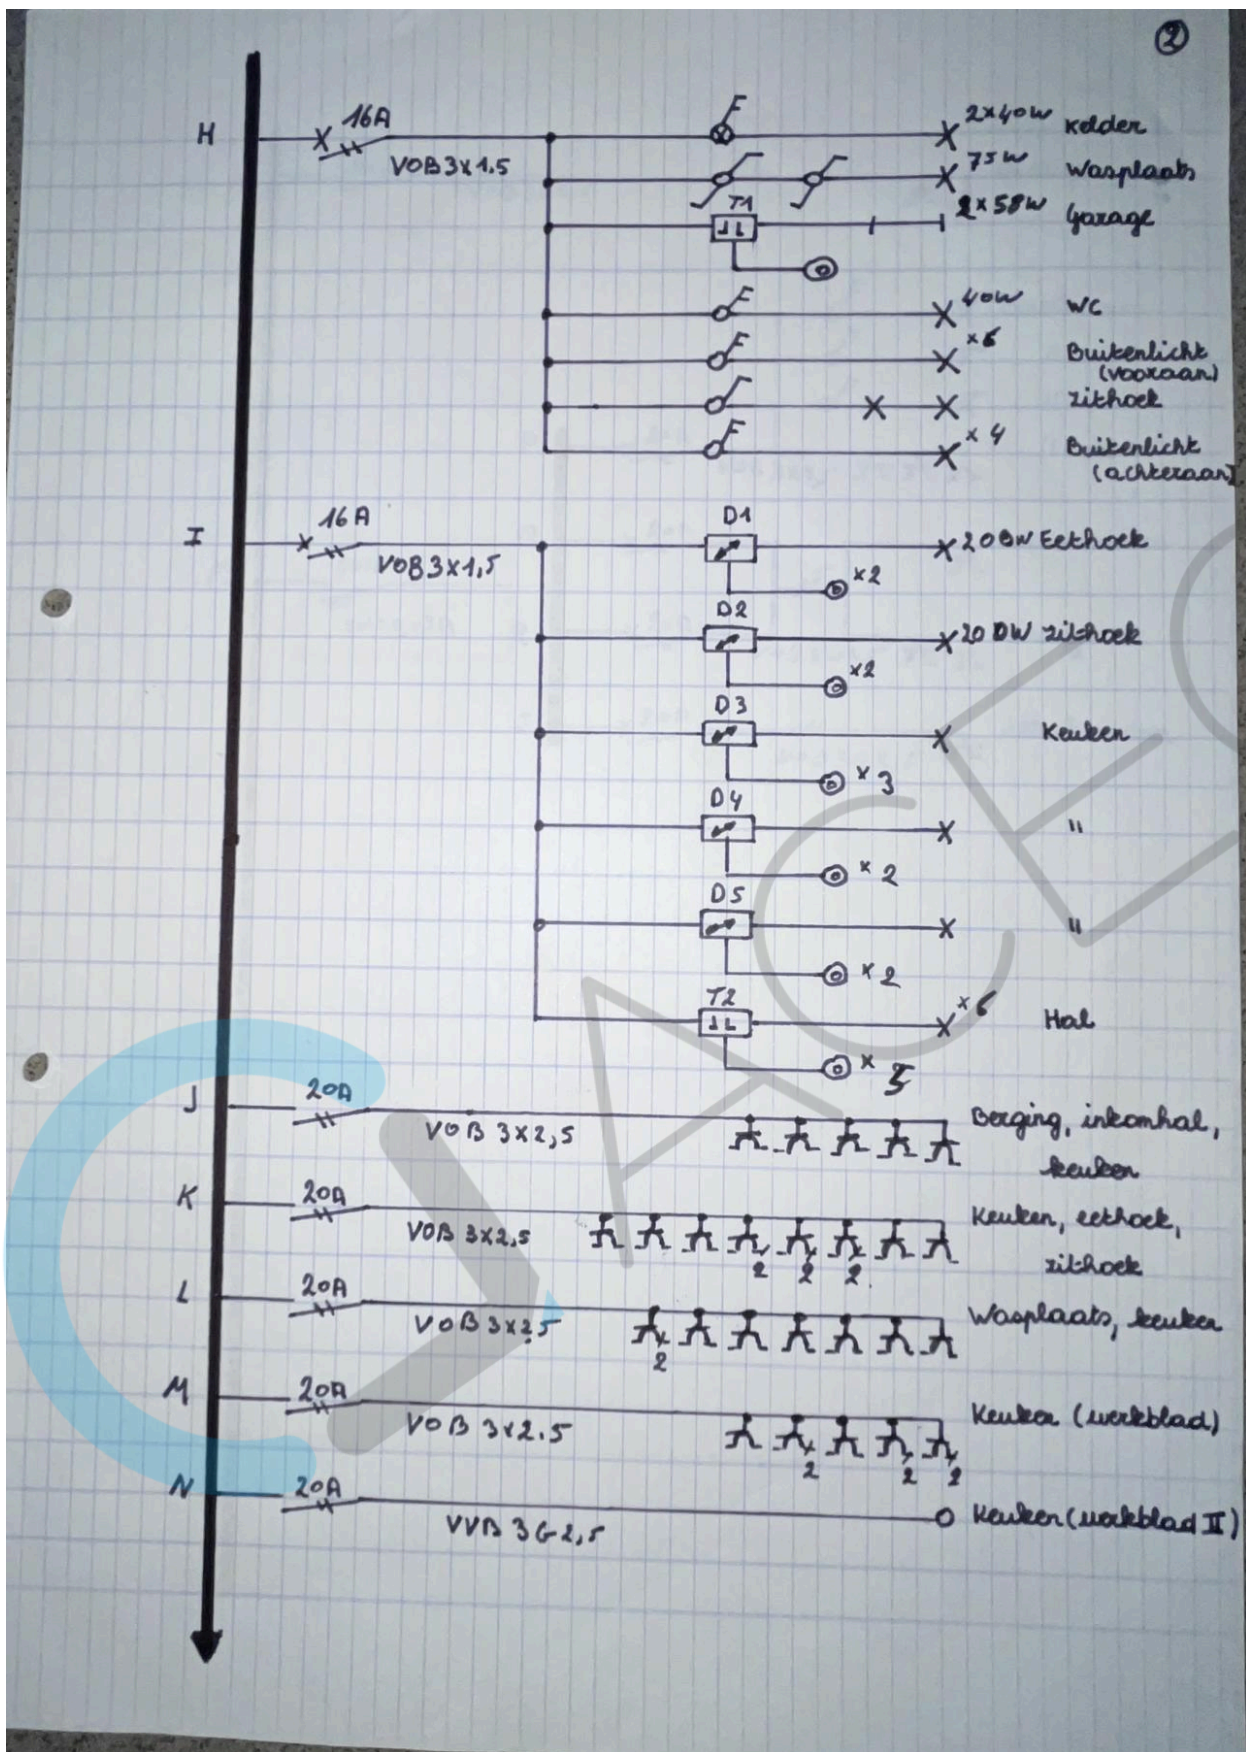 2
H 16A VOB 3x1.5
2x40W Kelder
75W Wasplaats
T1
2x58W Garage
40W WC
x6 Buitenlicht
(vooraan)
zithoek
x4 Buitenlicht
(achteraan)
I 16A VOB 3x1,5
D1
200W Eethoek
x2
D2
200W zithoek
x2
D3
Keuken
x3
D4
"
x2
D5
"
x2
T2
x6 Hal
x 5
J 20A VOB 3x2,5 Berging, inkomhal,
keuken
K 20A VOB 3x2,5 Keuken, eethoek,
2 2 2 zithoek
L 20A VOB 3x2,5 Wasplaats, keuken
2
M 20A VOB 3x2.5 Keuken (werkblad)
2 2 2
N 20A VVB 3G2,5 Keuken (werkblad II)
ACEG